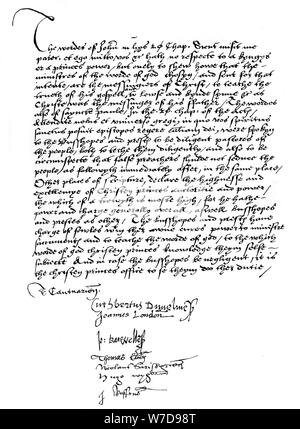 The wordes of John in his 20 chap. Sicut misit me
pater, et ego mitto vos &c hath no respecte to a kynges
or a princes power, but onely to shew how that the
ministres of the worde of god chosen and sent for that
intente, are the messingers of Christ, to teache the
trueth of his gospell, to loose and bynde synne &c as
Christe was the messinger of his father. The wordes
also of saincte paule, in the 20 chap. of the actes,
Attendite vobis et universo gregi, in quo vos spiritus
sanctus posuit episcopos regere ecclesiam dei, were spoken
to the bysshopes and prestes, to be diligent pastores of
the people, both to teche them diligently, and also to be
circumspecte that false preachers shulde not seduce the
people, as followeth immediately after, in the same place,
Other places of scripture, declare the highnesse and
excellencye of christen princes auctoritie and power,
the which of a trueth is moste high, for he hathe
power and charge generally over all, aswell bysshopes
and prestes as other, The bysshopes and prestes have
charge of soules within their awne cures, power to minister
sacraments and to teache the worde of god, to the which
worde of god christen princes knowledge them selfe
subiecte, And in case the bysshopes be negligent, it is
the christen princes office to se them do their dutie,
T. Cantuarien.
Cuthbertus Dunelmen
Joannes London
Jo: batwellen
Thomas Ely
Nicolaus Sarisburien
Hugo
J.
alamy
W7D98T